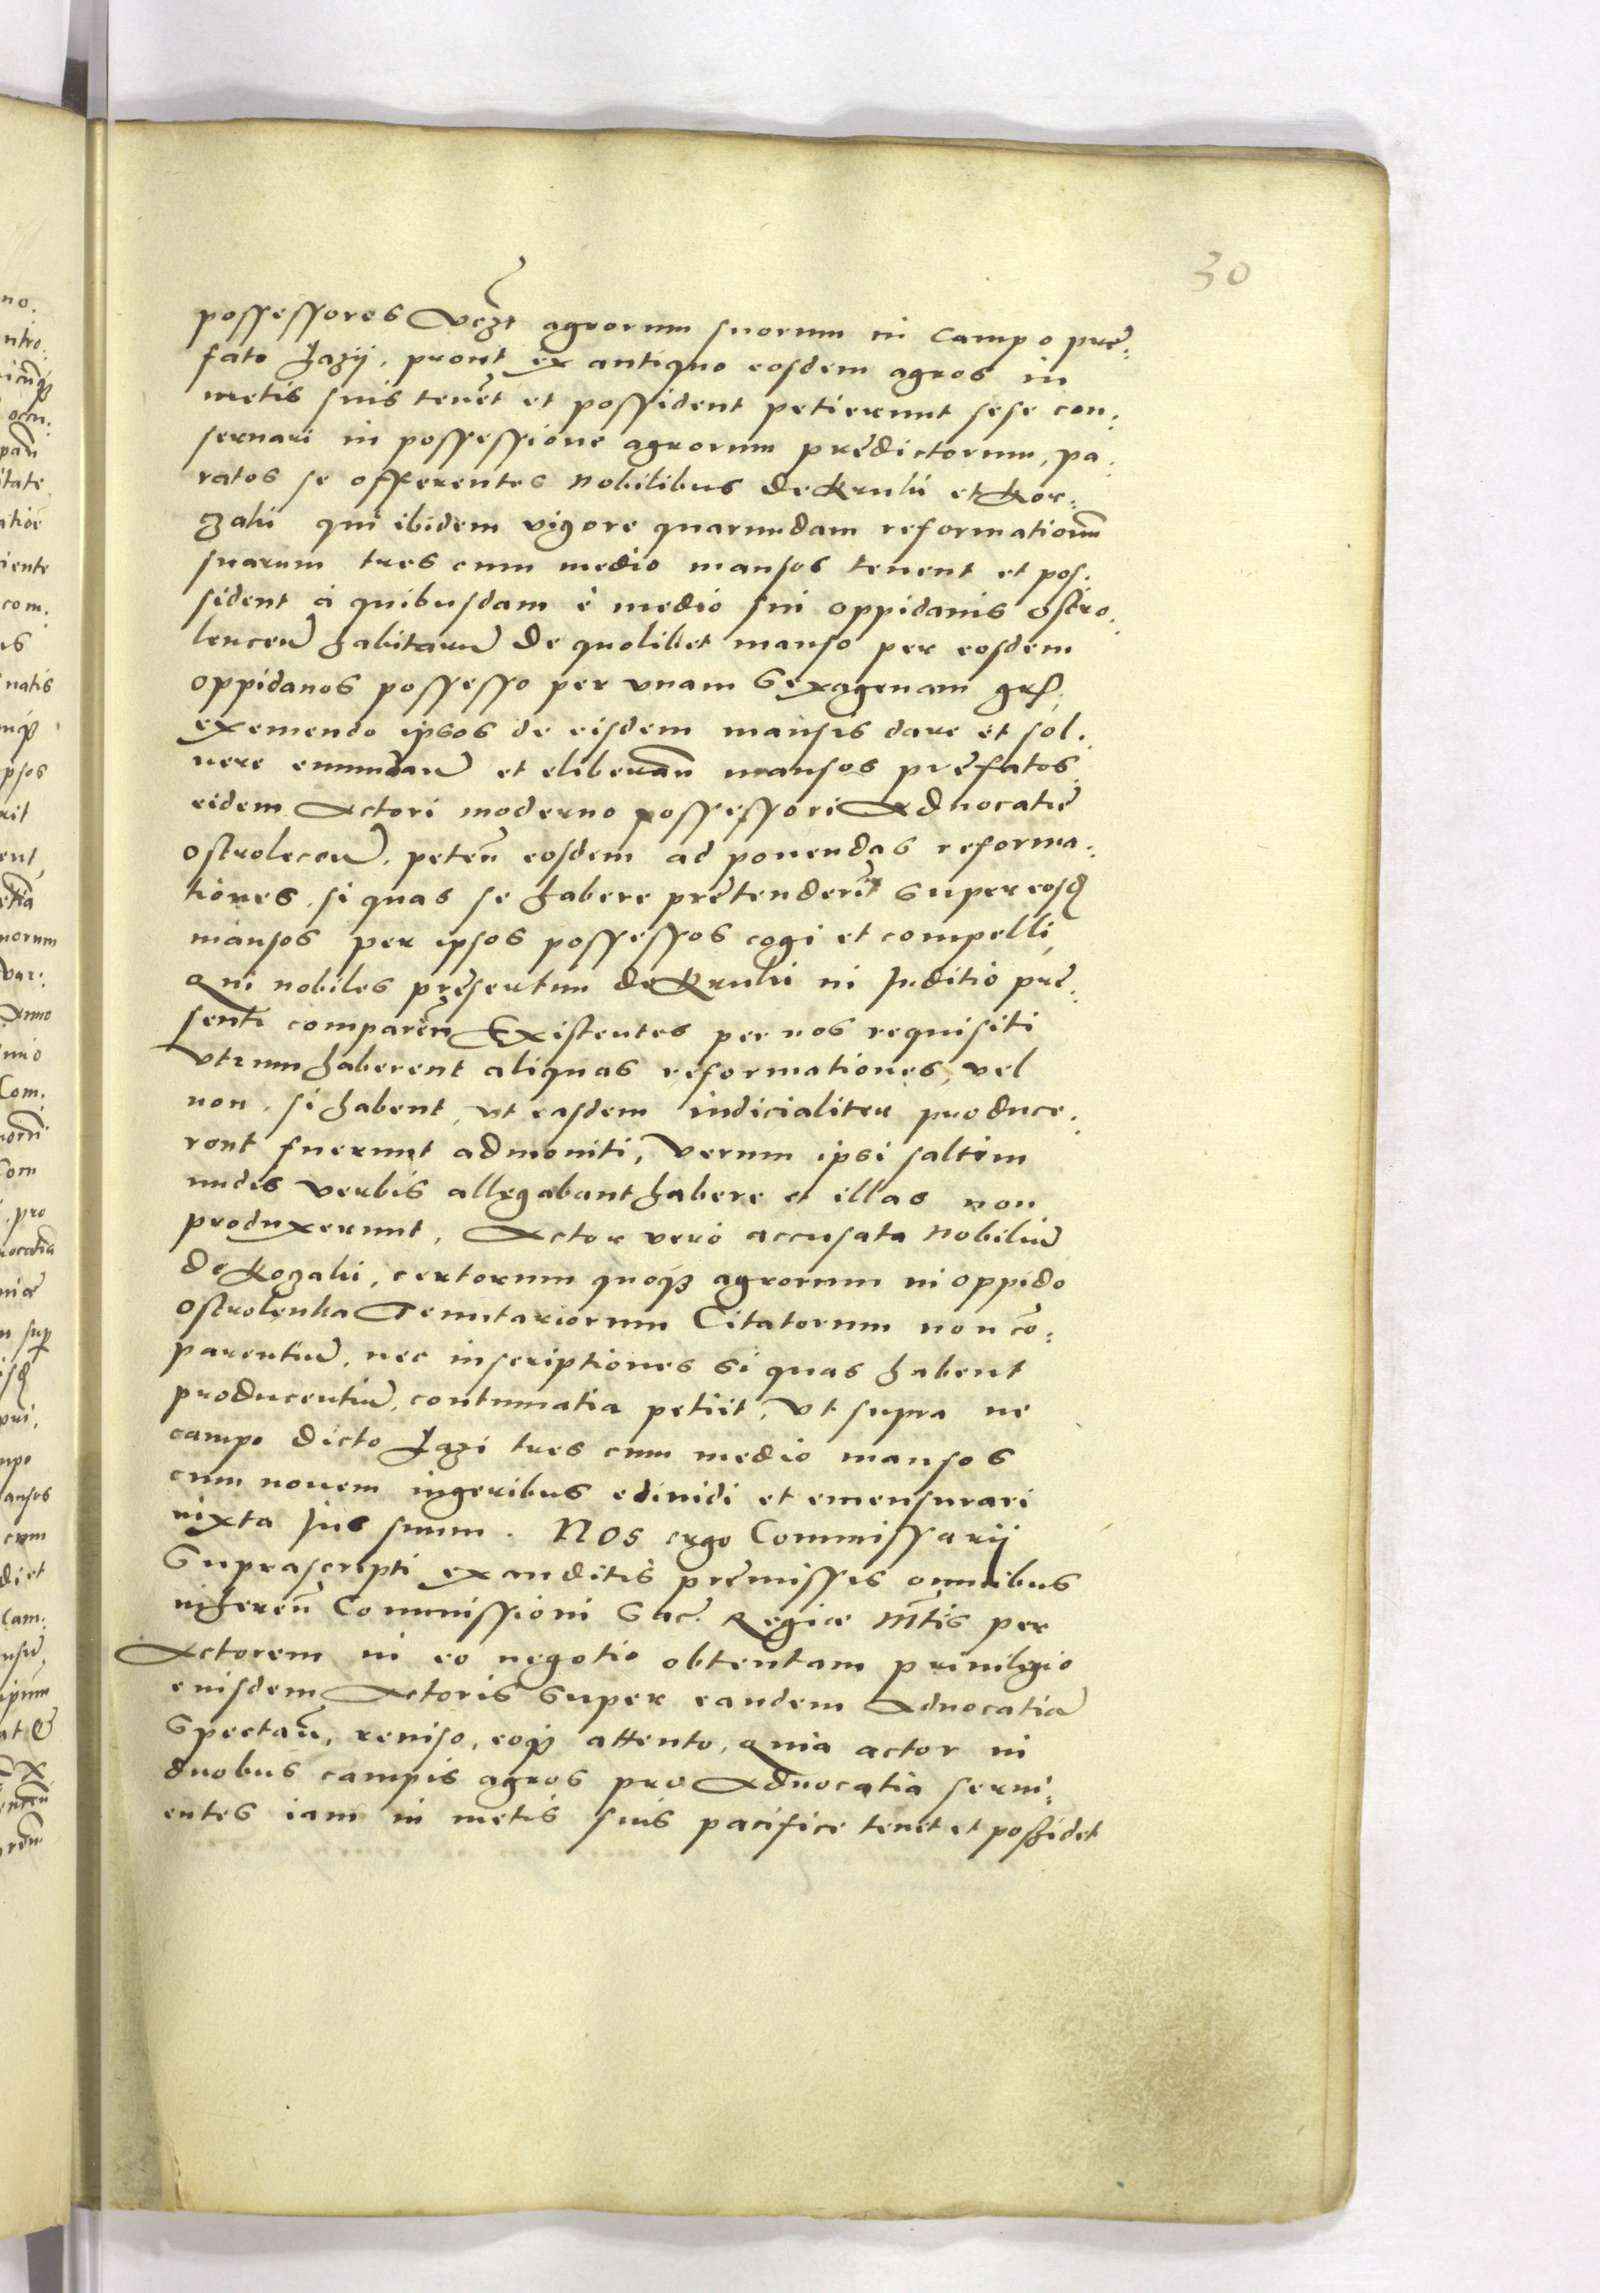 30
possessores agrorum suorum in campo pre:
fato Jazij, prout ex antiquo eosdem agros in
metis suis tenēt et possident petierunt sese con:
seruari in possessione agrorum predictorum, pa:
ratos se offerentes nobilibus de Krulii et Kor:
zalii qui ibidem vigore quarundam reformationū
suarum tres cum medio mansos tenent et pos:
sident à quibusdam è medio sui oppidanis ostro:
lencen̄ habitarū de quolibet manso per eosdem
oppidanos possesso per vnam Sexagenam grſ,
eximendo ipsos de eisdem mansis dare et sol:
uere et eliberan̄ mansos prefatos
eidem Actori moderno possessori Aduocatie
ostrolecen̄, peten̄ eosdem ad ponendas reforma:
tiones, si quas se habere pretenderēt super eosd
mansos per ipsos possessos cogi et compelli,
Qui nobiles presertim de Krulii in Juditio pre:
senti comparen̄ Existentes per nos requisiti
vtrum haberent aliquas reformationes, vel
non, si habent, vt easdem iudicialiter produce:
rent fuerunt admoniti, Verum ipsi saltim
nudis verbis allegabant habere et illas non
produxerunt, Actor vero accusata nobiliū
de Kozalii, certorum quoqꝫ agrorum in oppido
ostrolenka Tenutariorum Citatorum non cō:
parentiū, nec inscriptiones si quas habent
producentiū, contumatia petiit, vt supra ne
campo dicto Jazi tres cum medio mansos
cum nouem iugeribus ediuidi et emensurari
iuxta Jus suum. Nos ergo Commissarij
Suprascripti exauditis premissis omnibus
inheren̄ Commissioni Sac. Regie Mtis per
Actorem in eo negotio obtentam priuilegio
eiusdem Actoris super eandem Aduocatiā
Spectan̄, reuiso, eoqꝫ attento, Quia actor in
duobus campis agros pro Aduocatia serui:
entes iam in metis suis pacifice tenet et possidet